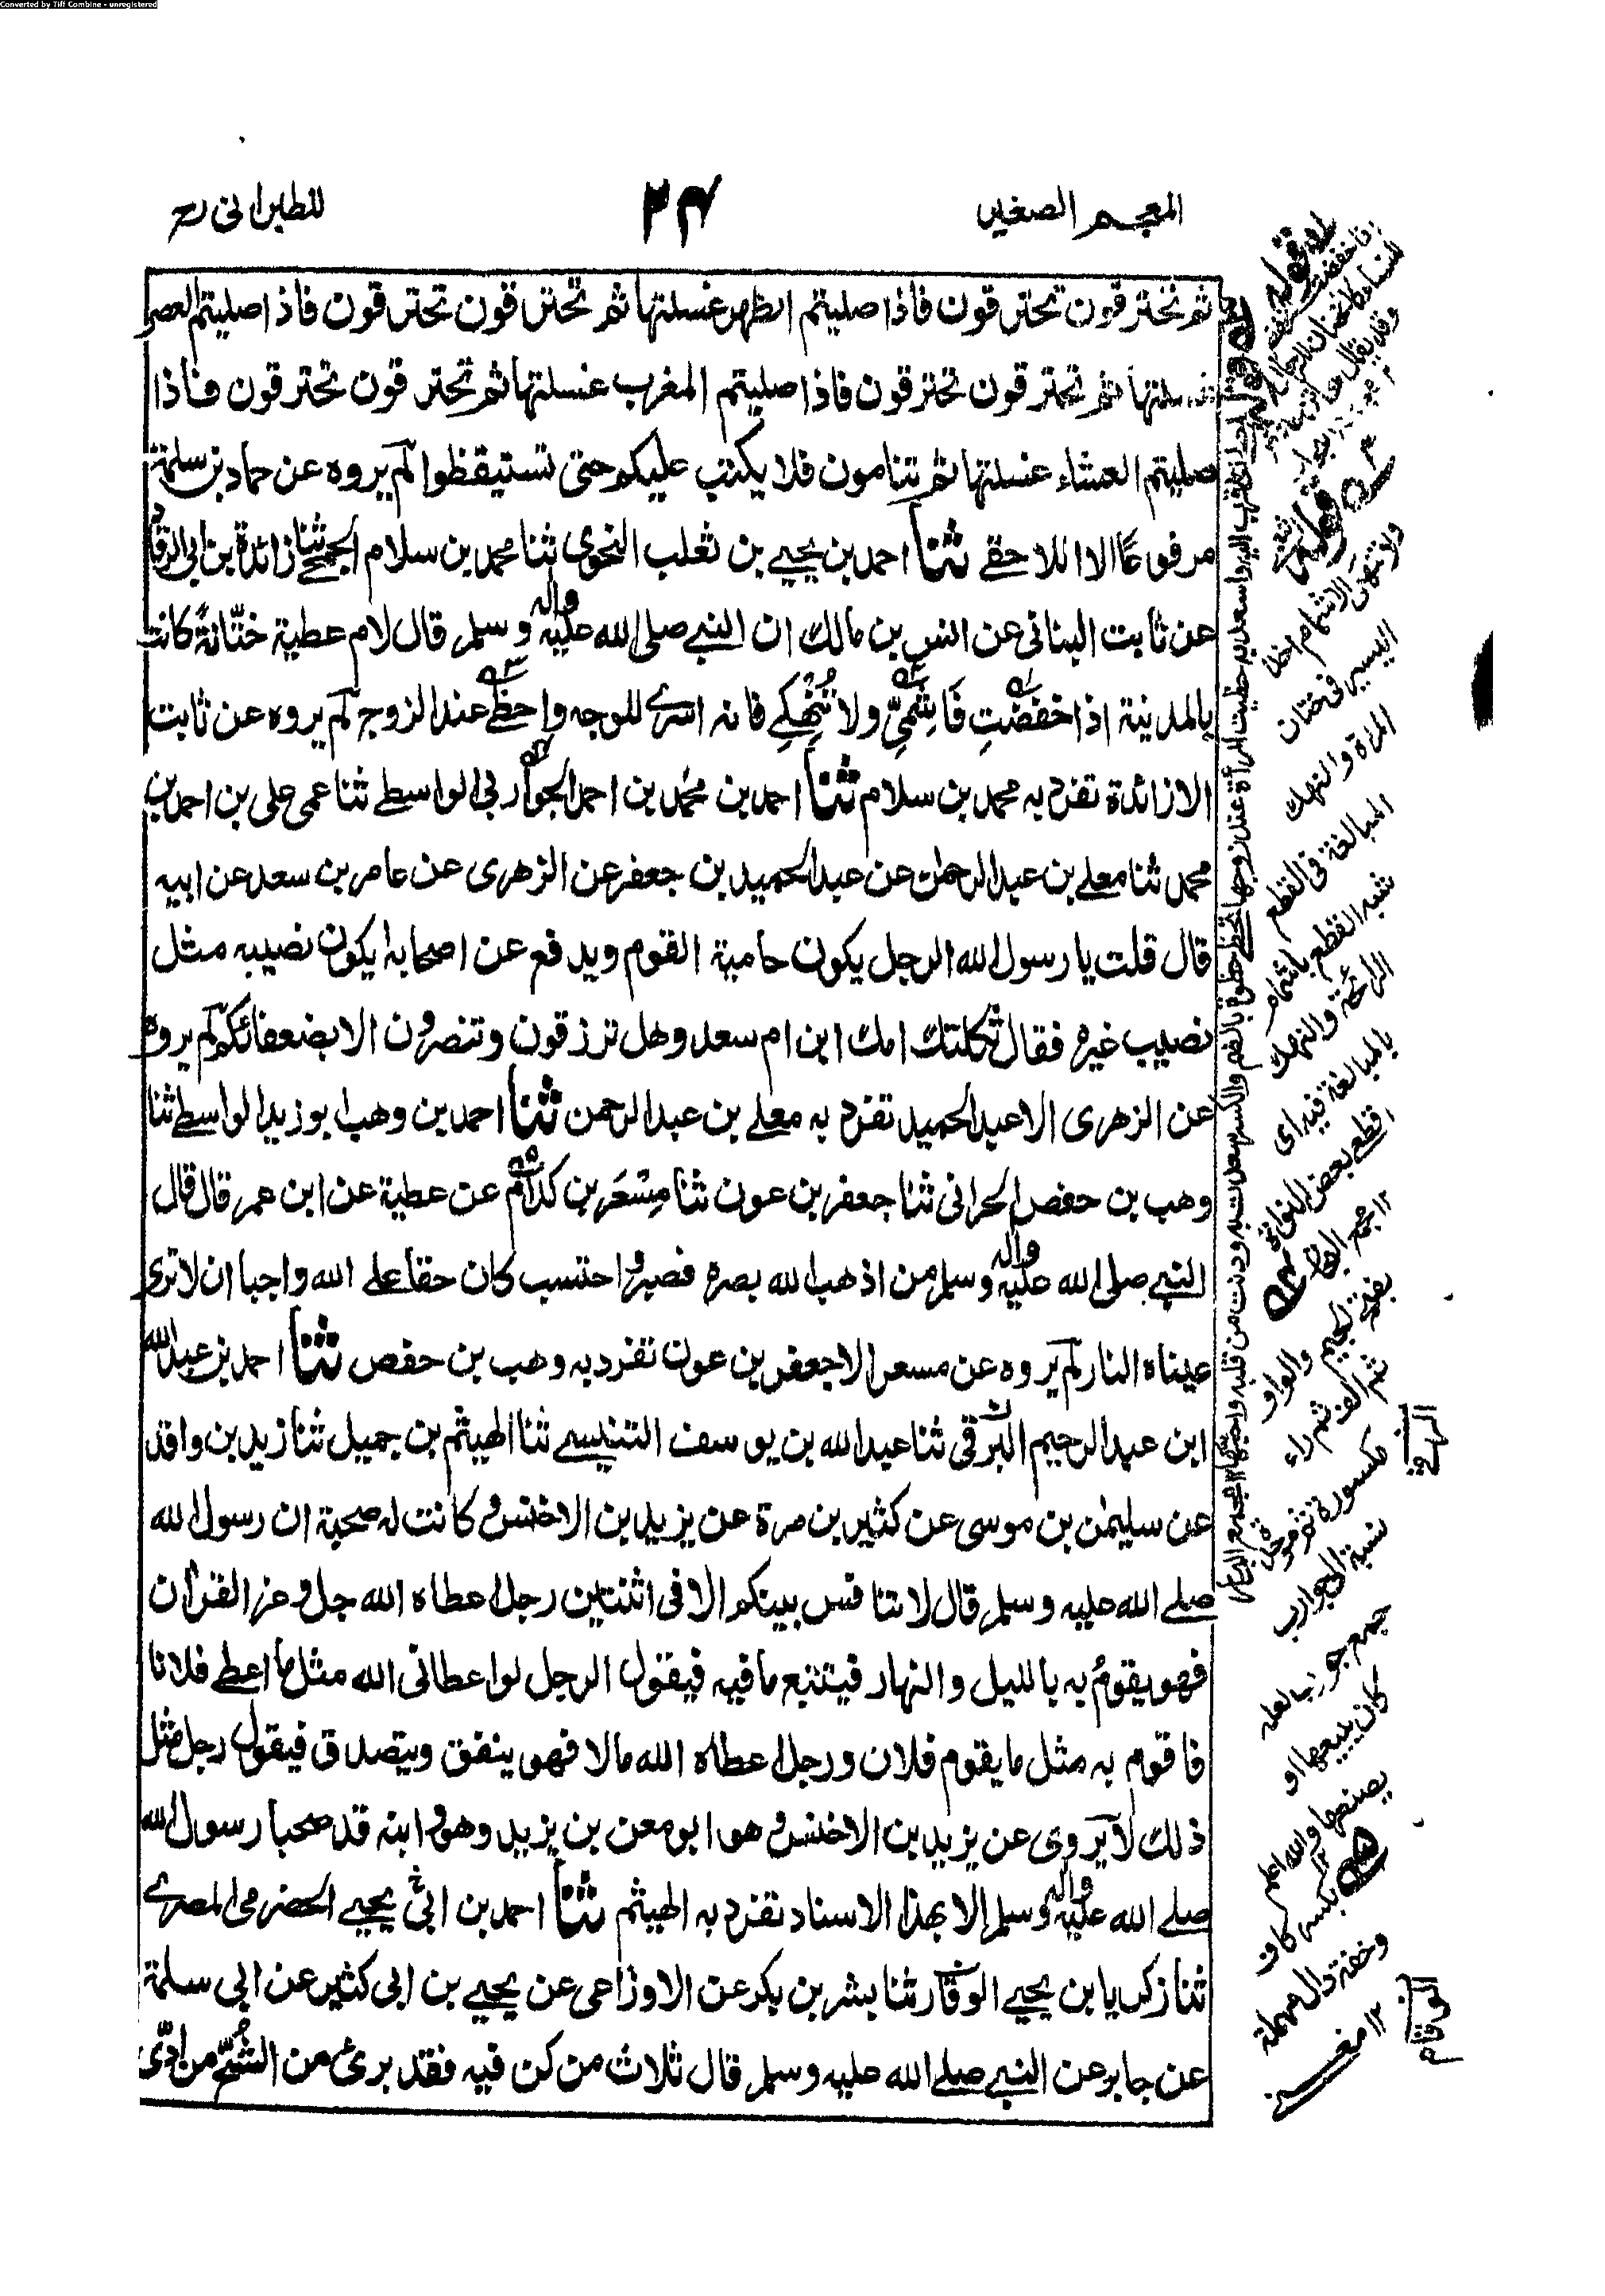 Converted by Tiff Combine - unregistered
المعجم الصغير
٢٤
للطبراني رح
ثم تحترقون تحترقون فاذا صليتم الظهر غسلتها ثم تحترقون تحترقون فاذا صليتم العصر
غسلتها ثم تحترقون تحترقون فاذا صليتم المغرب غسلتها ثم تحترقون تحترقون فاذا
صليتم العشاء غسلتها ثم تنامون فلا يكتب عليكم حتى تستيقظوا لم يروه عن حماد بن سلمة
مرفوعا الا اللاحقے ثنا احمد بن يحيے بن ثعلب النحوى ثنا محمد بن سلام الجمحے ثنا زائدة بن ابى الرقاد
عن ثابت البنانى عن انس بن مالك ان النبے صلى الله عليه واله وسلم قال لام عطية ختّانةً كانت
بالمدينة اذا خفضتِ فَاَشِمّيِ ولا تُنْهِكِے فانه اسرے للوجه واحظے عند الزوج لم يروه عن ثابت
الا زائدة تفرد به محمد بن سلام ثنا احمد بن محمد بن احمد الجواربى الواسطے ثنا عمى على بن احمد بن
محمد ثنا معلے بن عبد الرحمٰن عن عبد الحميد بن جعفر عن الزهرى عن عامر بن سعد عن ابيه
قال قلت يا رسول الله الرجل يكون حامية القوم ويدفع عن اصحابه ايكون نصيبه مثل
نصيب غيره فقال ثكلتك امك ابن ام سعد وهل ترزقون وتنصرون الا بضعفائكم لم يروه
عن الزهرى الا عبد الحميد تفرد به معلے بن عبد الرحمن ثنا احمد بن وهب ابو زيد الواسطے ثنا
وهب بن حفص الحرانى ثنا جعفر بن عون ثنا مِسْعَر بن كدام عن عطية عن ابن عمر قال قال
النبے صلى الله عليه واله وسلم من اذهب الله بصره فصبر واحتسب كان حقا علے الله واجبا ان لا ترى
عيناه النار لم يروه عن مسعر الا جعفر بن عون تفرد به وهب بن حفص ثنا احمد بن عبد الله
ابن عبد الرحيم البرقى ثنا عبد الله بن يوسف التنيسے ثنا الهيثم بن جميل ثنا زيد بن واقد
عن سليمٰن بن موسى عن كثير بن مرة عن يزيد بن الاخنس وكانت له صحبة ان رسول الله
صلے الله عليه وسلم قال لا تنافس بينكم الا فى اثنتين رجل اعطاه الله جل وعز القرآن
فهو يقومُ به بالليل والنهار فيتتبع ما فيه فيقول الرجل لو اعطانى الله مثل ما اعطے فلانا
فاقوم به مثل ما يقوم فلان ورجل اعطاه الله مالا فهو ينفق ويتصدق فيقول رجل مثل
ذلك لا يروى عن يزيد بن الاخنس وهو ابو معن بن يزيد وهو وابنه قد صحبا رسول الله
صلے الله عليه واله وسلم الا بهذا الاسناد تفرد به الهيثم ثنا احمد بن ابى يحيے الحضرمى المصرے
ثنا زكريا بن يحيے الوقار ثنا بشر بن بكر عن الاوزاعى عن يحيے بن ابى كثير عن ابى سلمة
عن جابر عن النبے صلے الله عليه وسلم قال ثلاث من كن فيه فقد برئ من الشُّحّ من ادّى
اليسير فى ختان
المرأة والنهك
المبالغة فى القطع
شبه القطع باشمام
الرائحة والنهك
بالمبالغة فيه اى
اقطع بعض النواة
بفتح الجيم والواو
ثم الف ثم راء
مكسورة ثم موحدة
نسبة الى الجوارب
جمع جورب لعله
كان يبيعها او
يصنعها والله اعلم
بكسر كاف
وخفة دال مهملة
١٢ مغنے